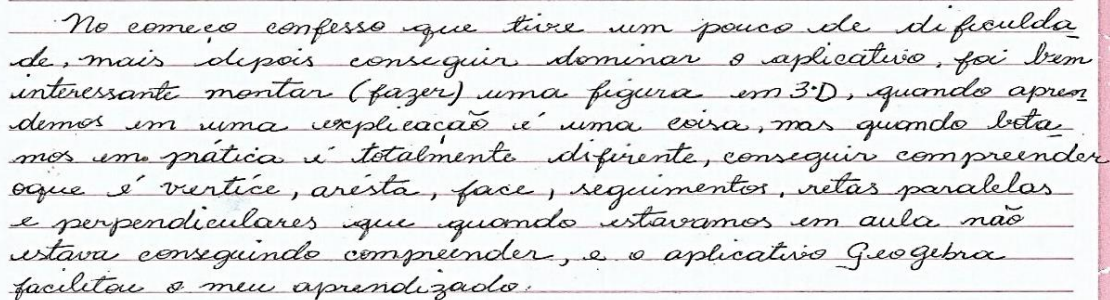 No começo confesso que tive um pouco de dificulda
de, mais depois conseguir dominar o aplicativo, foi bem
interessante montar (fazer) uma figura em 3D, quando apren
demos em uma explicação é uma coisa, mas quando bota
mos em prática é totalmente difirente, conseguir compreender
oque é vertíce, arésta, face, seguimentos, retas paralelas
e perpendiculares que quando estavamos em aula não
estava conseguindo compreender, e o aplicativo Geogebra
facilitou o meu aprendizado.